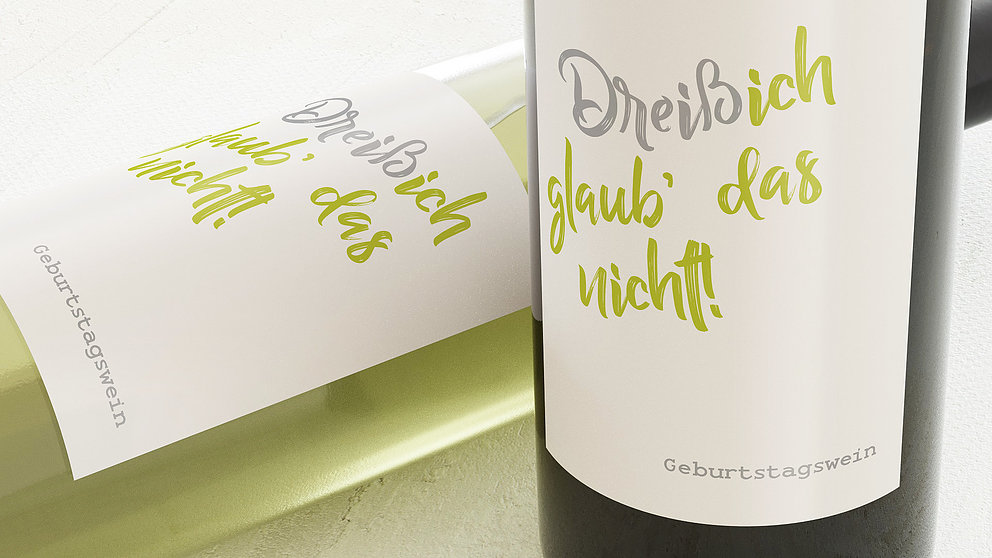 Dreißich
glaub' das
nicht!
Geburtstagswein
Dreißich
glaub' das
nicht!
Geburtstagswein